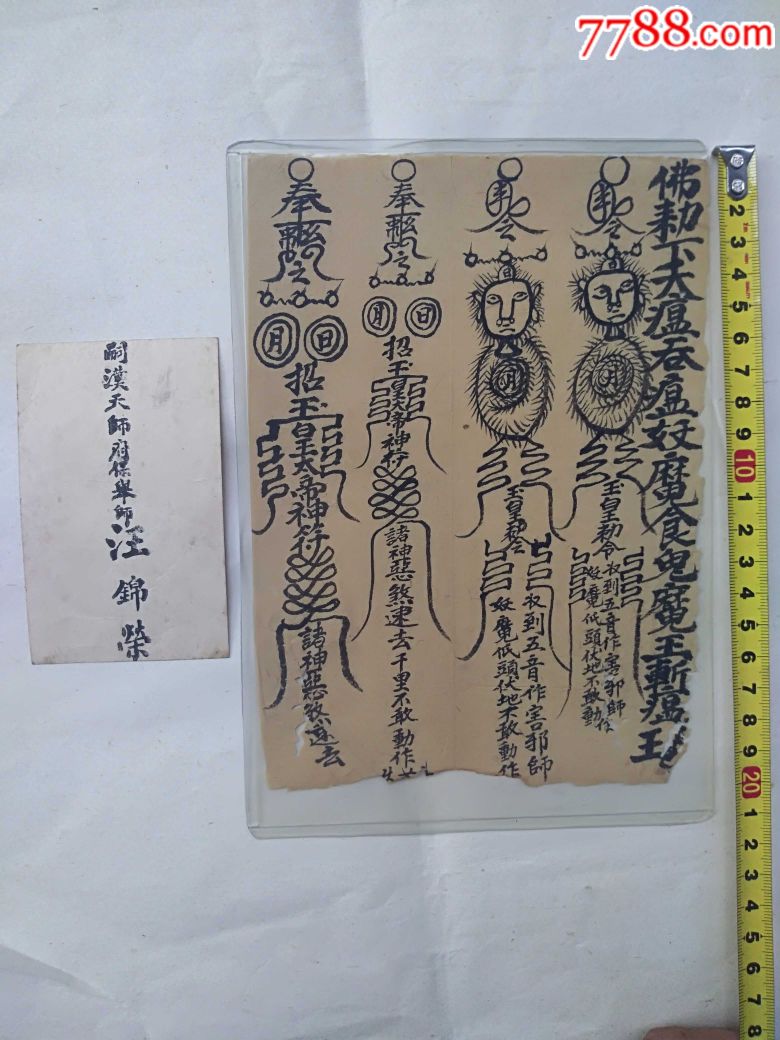 7788.com
佛勅下夫瘟吞瘟妖魔食鬼魔王斬瘟王
令
月
玉皇勅令
收到五音作害邪師作
妖魔低頭伏地不敢動
令
月
玉皇勅令
收到五音作害邪師
妖魔低頭伏地不敢動作
奉
日
月
招玉皇大帝神符
諸神惡煞速去千里不敢動作
奉
日
月
招玉皇大帝神符
諸神惡煞速去
嗣漢天師府保舉師汪錦榮
2 3 4 5 6 7 8 9 10 1 2 3 4 5 6 7 8 9 20 1 2 3 4 5 6 7 8